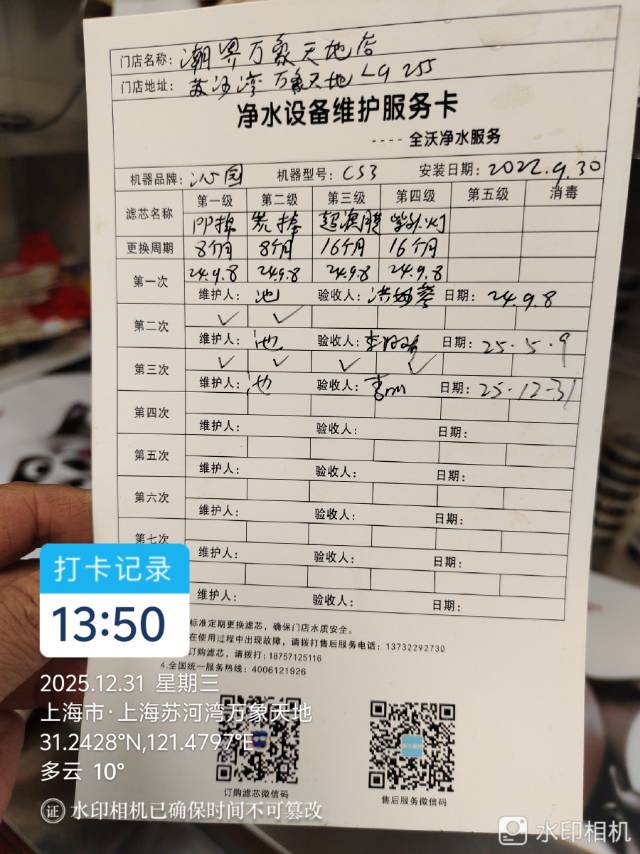 门店名称: 潮界万象天地店
门店地址: 苏河湾万象天地LG255
净水设备维护服务卡
----全沃净水服务
机器品牌: 沁园 机器型号: CS3 安装日期: 2022.9.30
滤芯名称 第一级 第二级 第三级 第四级 第五级 消毒
PP棉 炭棒 超滤膜 紫外灯
更换周期 8个月 8个月 16个月 16个月
第一次 24.9.8 24.9.8 24.9.8 24.9.8
维护人: 池 验收人: 日期: 24.9.8
第二次 ✓ ✓
维护人: 池 验收人: 日期: 25.5.9
第三次 ✓ ✓ ✓ ✓
维护人: 池 验收人: 日期: 25.12.31
第四次
维护人: 验收人: 日期:
第五次
维护人: 验收人: 日期:
第六次
维护人: 验收人: 日期:
第七次
维护人: 验收人: 日期:
维护人: 验收人: 日期:
标准定期更换滤芯，确保门店水质安全。
在使用过程中出现故障，请拨打售后服务电话: 13732292730
订购滤芯，请拨打: 18757125116
4.全国统一服务热线: 4006121926
订购滤芯微信码
售后服务微信码
打卡记录
13:50
2025.12.31 星期三
上海市·上海苏河湾万象天地
31.2428°N,121.4797°E
多云 10°
证 水印相机已确保时间不可篡改
水印相机